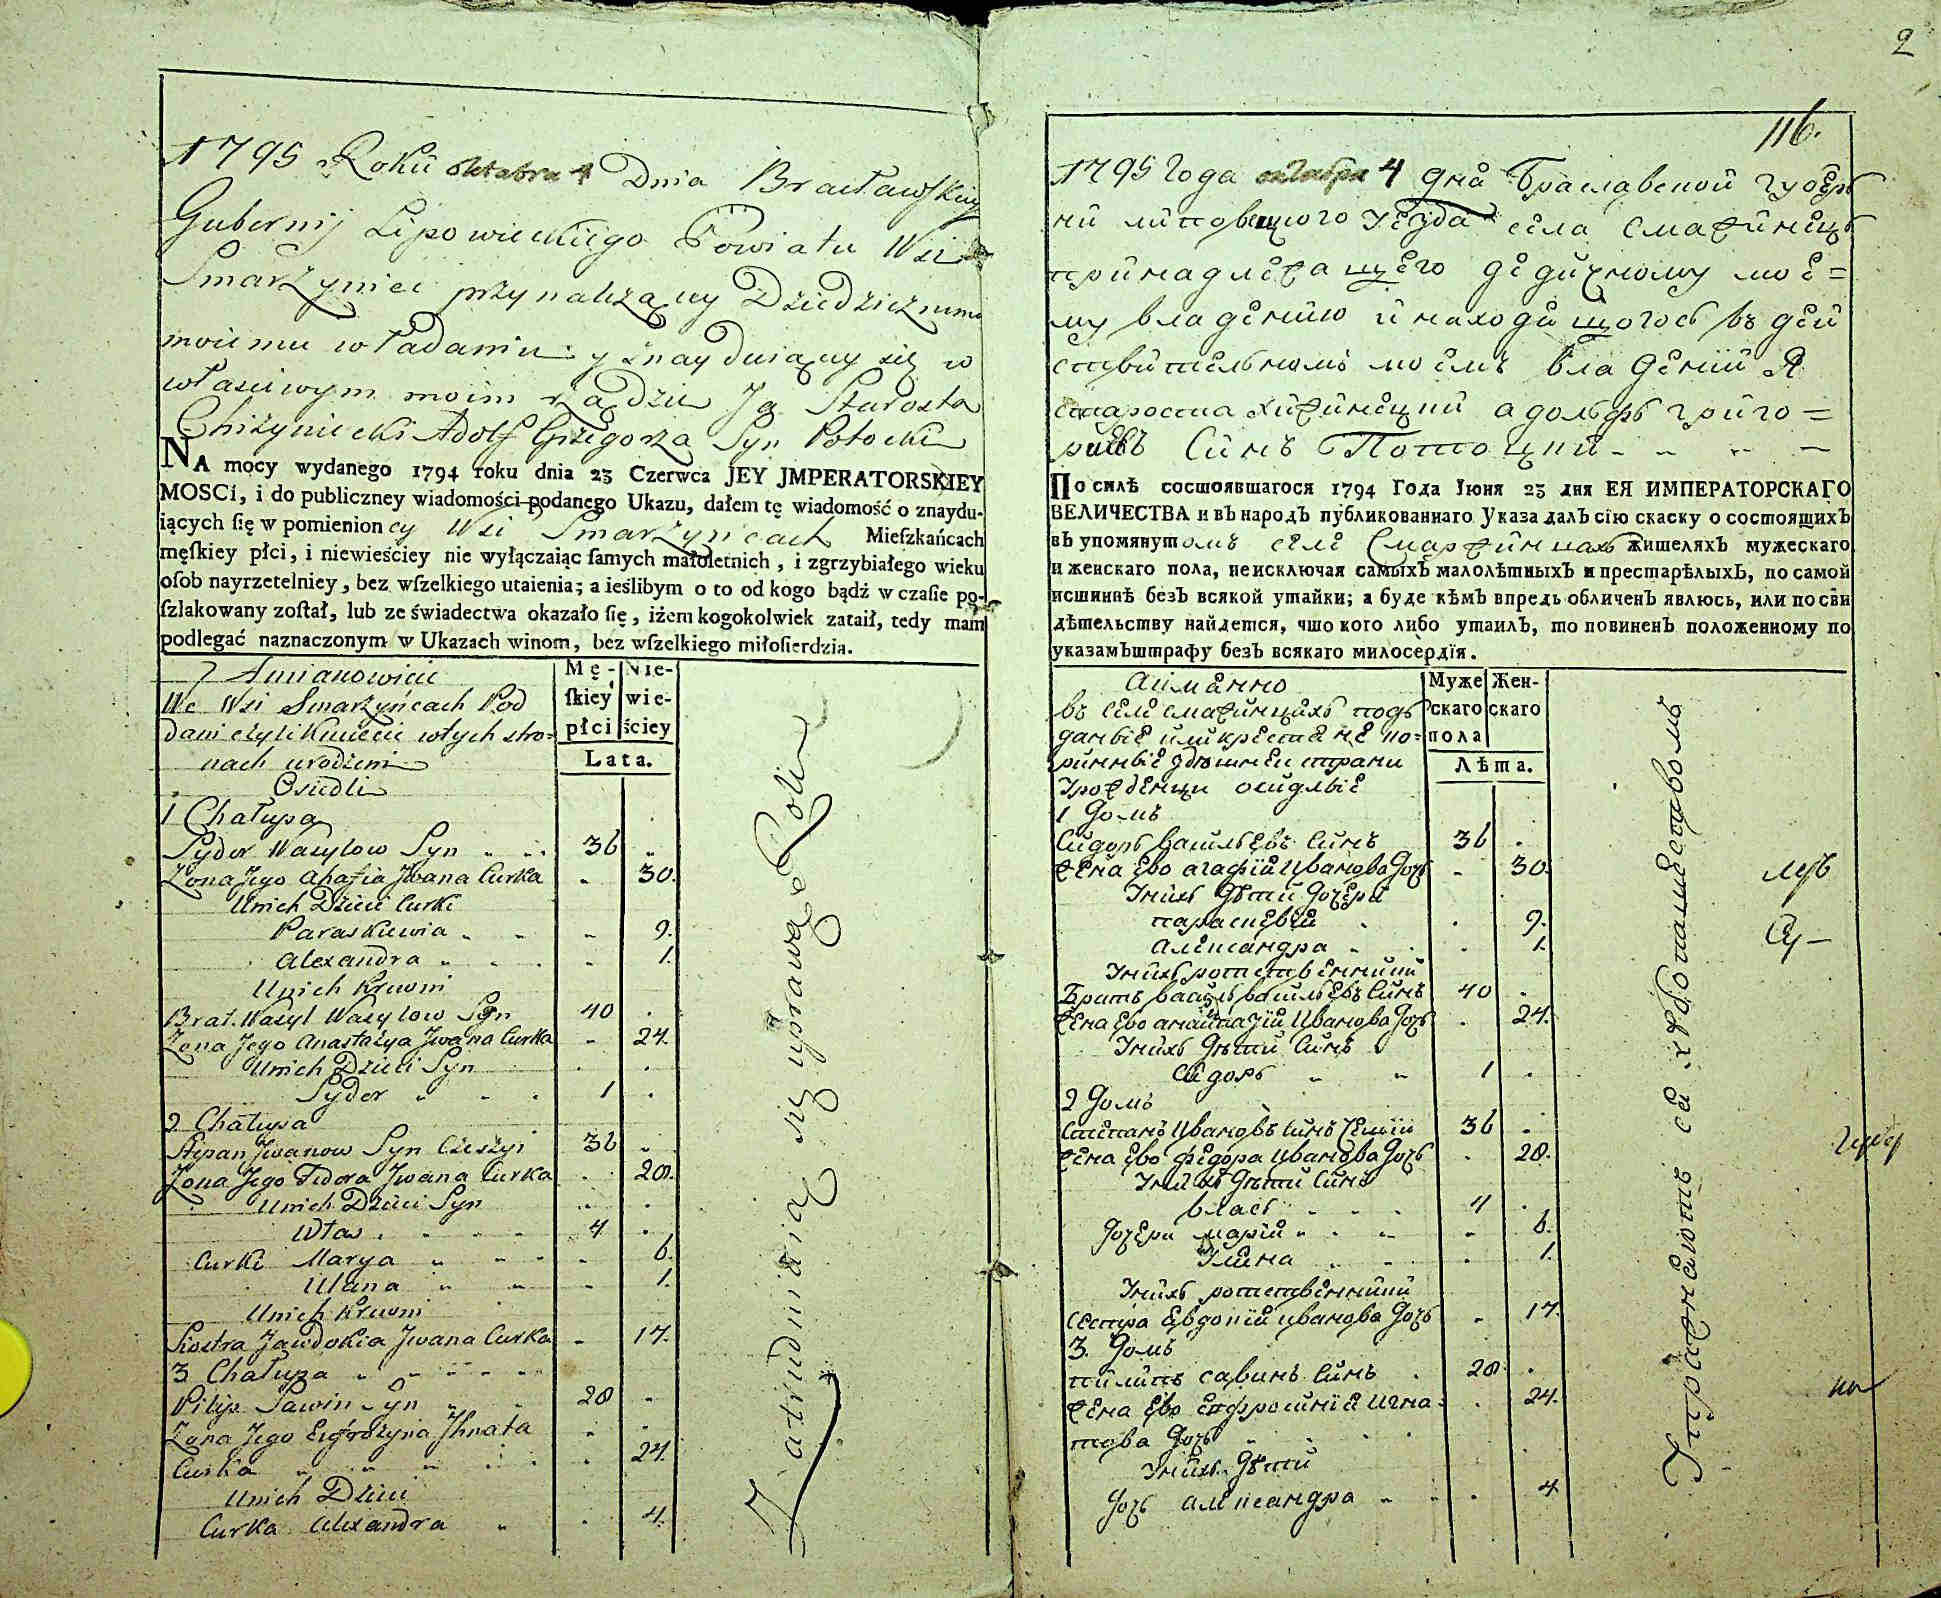 1795 Roku oktabra 4 Dnia Bracławskiey
Gubernij Lipowieckiego Powiatu Wsi
Smarżyniec przynależącey Dziedzicznemu
moiemu władaniu y znayduiącey się w
właściwym moim rządzie Ja Starosta
Chiżyniecki Adolf Grzegorza Syn Potocki
NA mocy wydanego 1794 roku dnia 23 Czerwca JEY JMPERATORSKIEY
MOSCi, i do publiczney wiadomości podanego Ukazu, dałem tę wiadomość o znaydu-
iących ſię w pomienioney Wsi Smarżyńcach Mieſzkańcach
męſkiey płci, i niewieściey nie wyłączaiąc ſamych małoletnich, i zgrzybiałego wieku
oſob nayrzetelniey, bez wſzelkiego utaienia; a ieślibym o to od kogo bądź w czaſie po-
ſzlakowany zoſtał, lub ze świadectwa okazało ſię, iżem kogokolwiek zataił, tedy mam
podlegać naznaczonym w Ukazach winom, bez wſzelkiego miłoſierdzia.
A mianowicie
We Wsi Smarżyńcach Pod
dani czyli Kmiecie w tych stro-
nach urodzeni
Osiedli
Mę-
ſkiey
płci
Nie-
wie-
ściey
Lata.
1 Chałupa
Sydor Wasylow Syn 36
Żona Jego Ahafia Jwana Curka 30.
U nich Dzieci Curki
Paraskiewia 9.
Alexandra 1.
U nich Krewni
Brat Wasyl Wasylow Syn 40
Żona Jego Anastazya Jwana Curka 24.
U nich Dzieci Syn
Sydor 1
2 Chałupa
Stepan Jwanow Syn Czeszyi 36
Żona Jego Fedora Jwana Curka 28.
U nich Dzieci Syn
Włas 4
Curki Marya 6.
Ulana 1.
U nich Krewni
Siostra Jawdokia Jwana Curka 17.
3 Chałupa
Pilip Sawin Syn 28
Żona Jego Eufrozyna Jhnata
Curka 24.
U nich Dzieci
Curka Alexandra 4.
Zatrudniaią się uprawą Roli
2
116.
1795 Года октабра 4 дна Браславской губер
нии липовецкого уезда села Смаржинецъ
принадлежащего дедичному мое=
му владению и находящогось въ дей
ствительномъ моемъ владении Я
староста хижинецкий адольфъ григо=
риевъ Синъ Потоцкий
По силѣ состоявшагося 1794 Года Іюня 23 дня ЕЯ ИМПЕРАТОРСКАГО
ВЕЛИЧЕСТВА и въ народъ публикованнаго Указа далъ сію скаску о состоящихъ
въ упомянутомъ селе Смаржинцахъ жителяхъ мужескаго
и женскаго пола, неисключая самыхъ малолѣтныхъ и престарѣлыхъ, по самой
истиннѣ безъ всякой утайки; а буде кѣмъ впредь обличенъ явлюсь, или по сви
дѣтельству найдется, что кого либо утаилъ, то повиненъ положенному по
указамъ штрафу безъ всякаго милосердія.
Аименно
въ селе смажинцихъ подъ
данные или крестяне ко-
ринные здешней страни
Урожденци оседлые
Муже
скаго
пола
Жен-
скаго
Лѣта.
1 домъ
Сидоръ васильевъ Синъ 36
жена ево агафия иванова дочь 30.
У нихъ дети дочери
параскевия 9.
александра 1.
У нихъ родственний
Братъ василь васильевъ Синъ 40
жена ево анастазия иванова дочь 24.
У нихъ дети Синъ
Сидоръ 1
2 домъ
степанъ ивановъ Синъ чеший 36
жена ево федора иванова дочь 28.
У нихъ дети Синъ
власъ 4
дочери мария 6.
улиана 1.
У нихъ родственний
сестра евдокия иванова дочь 17.
3. домъ
пилипъ савинъ Синъ 28
жена ево ефросиние игна= 24.
това дочь
У нихъ дети
дочь александра 4
Упражнаютъ са хлебопашествомъ